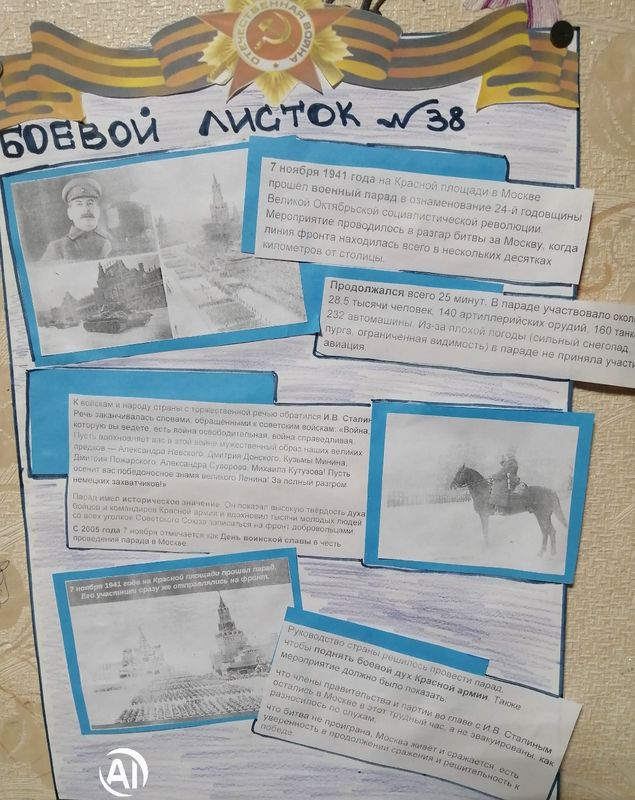 ОТЕЧЕСТВЕННАЯ ВОЙНА
БОЕВОЙ ЛИСТОК №38
7 ноября 1941 года на Красной площади в Москве
прошёл военный парад в ознаменование 24-й годовщины
Великой Октябрьской социалистической революции.
Мероприятие проводилось в разгар битвы за Москву, когда
линия фронта находилась всего в нескольких десятках
километров от столицы.
Продолжался всего 25 минут. В параде участвовало около
28,5 тысячи человек, 140 артиллерийских орудий, 160 танко
232 автомашины. Из-за плохой погоды (сильный снегопад,
пурга, ограниченная видимость) в параде не приняла участи
авиация.
К войскам и народу страны с торжественной речью обратился И.В. Сталин
Речь заканчивалась словами, обращёнными к советским войскам: «Война,
которую вы ведете, есть война освободительная, война справедливая.
Пусть вдохновляет вас в этой войне мужественный образ наших великих
предков — Александра Невского, Дмитрия Донского, Кузьмы Минина,
Дмитрия Пожарского, Александра Суворова, Михаила Кутузова! Пусть
осенит вас победоносное знамя великого Ленина! За полный разгром
немецких захватчиков!»
Парад имел историческое значение. Он показал высокую твёрдость духа
бойцов и командиров Красной армии и вдохновил тысячи молодых людей
со всех уголков Советского Союза записаться на фронт добровольцами.
С 2005 года 7 ноября отмечается как День воинской славы в честь
проведения парада в Москве.
7 ноября 1941 года на Красной площади прошел парад.
Его участники сразу же отправлялись на фронт.
Руководство страны решилось провести парад,
чтобы поднять боевой дух Красной армии. Также
мероприятие должно было показать:
что члены правительства и партии во главе с И.В. Сталиным
остались в Москве в этот трудный час, а не эвакуированы, как
разносилось по слухам;
что битва не проиграна, Москва живёт и сражается, есть
уверенность в продолжении сражения и решительность к
победе.
AI